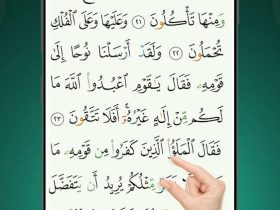 وَمِنْهَا تَأْكُلُونَ ٢١ وَعَلَيْهَا وَعَلَى ٱلْفُلْكِ
تُحْمَلُونَ ٢٢ وَلَقَدْ أَرْسَلْنَا نُوحًا إِلَىٰ
قَوْمِهِۦ فَقَالَ يَٰقَوْمِ ٱعْبُدُوا۟ ٱللَّهَ مَا
لَكُم مِّنْ إِلَٰهٍ غَيْرُهُۥٓ أَفَلَا تَتَّقُونَ ٢٣
فَقَالَ ٱلْمَلَؤُا۟ ٱلَّذِينَ كَفَرُوا۟ مِن قَوْمِهِۦ مَا
مِّثْلُكُمْ يُرِيدُ أَن يَتَفَضَّلَ